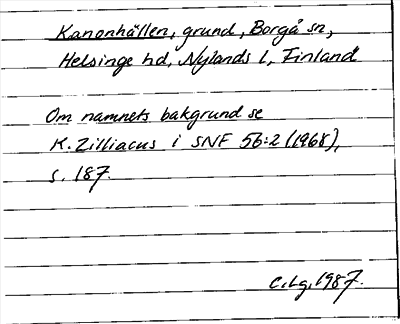 Kanonhällen, grund, Borgå sn,
Helsinge hd, Nylands l, Finland
Om namnets bakgrund se
K. Zilliacus i SNF 56:2 (1968),
s. 187.
C.Lg. 1987.